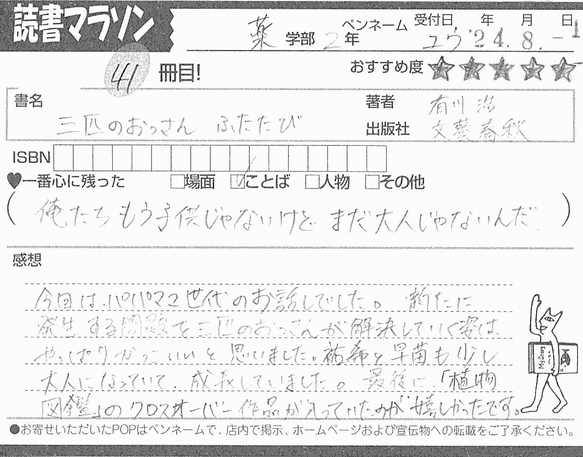 読書マラソン
薬 学部 2年 ペンネーム ユウ 受付日 '24年 8.月 -1日
41 冊目! おすすめ度 ★★★★★
書名 三匹のおっさん ふたたび
著者 有川 浩
出版社 文藝春秋
ISBN
♥一番心に残った □場面 ☑ことば □人物 □その他
(俺たち もう子供じゃないけど まだ大人じゃないんだ)
感想
今回は、パパママ世代のお話しでした。 新たに
発生する問題を三匹のおっさんが解決していく姿は
やっぱりかっこいいと思いました。祐希と早苗も少し
大人になっていて、成長していました。最後に、「植物
図鑑」のクロスオーバー作品が入っていたのが嬉しかったです。
●お寄せいただいたPOPはペンネームで、店内で掲示、ホームページおよび宣伝物への転載をご了承ください。